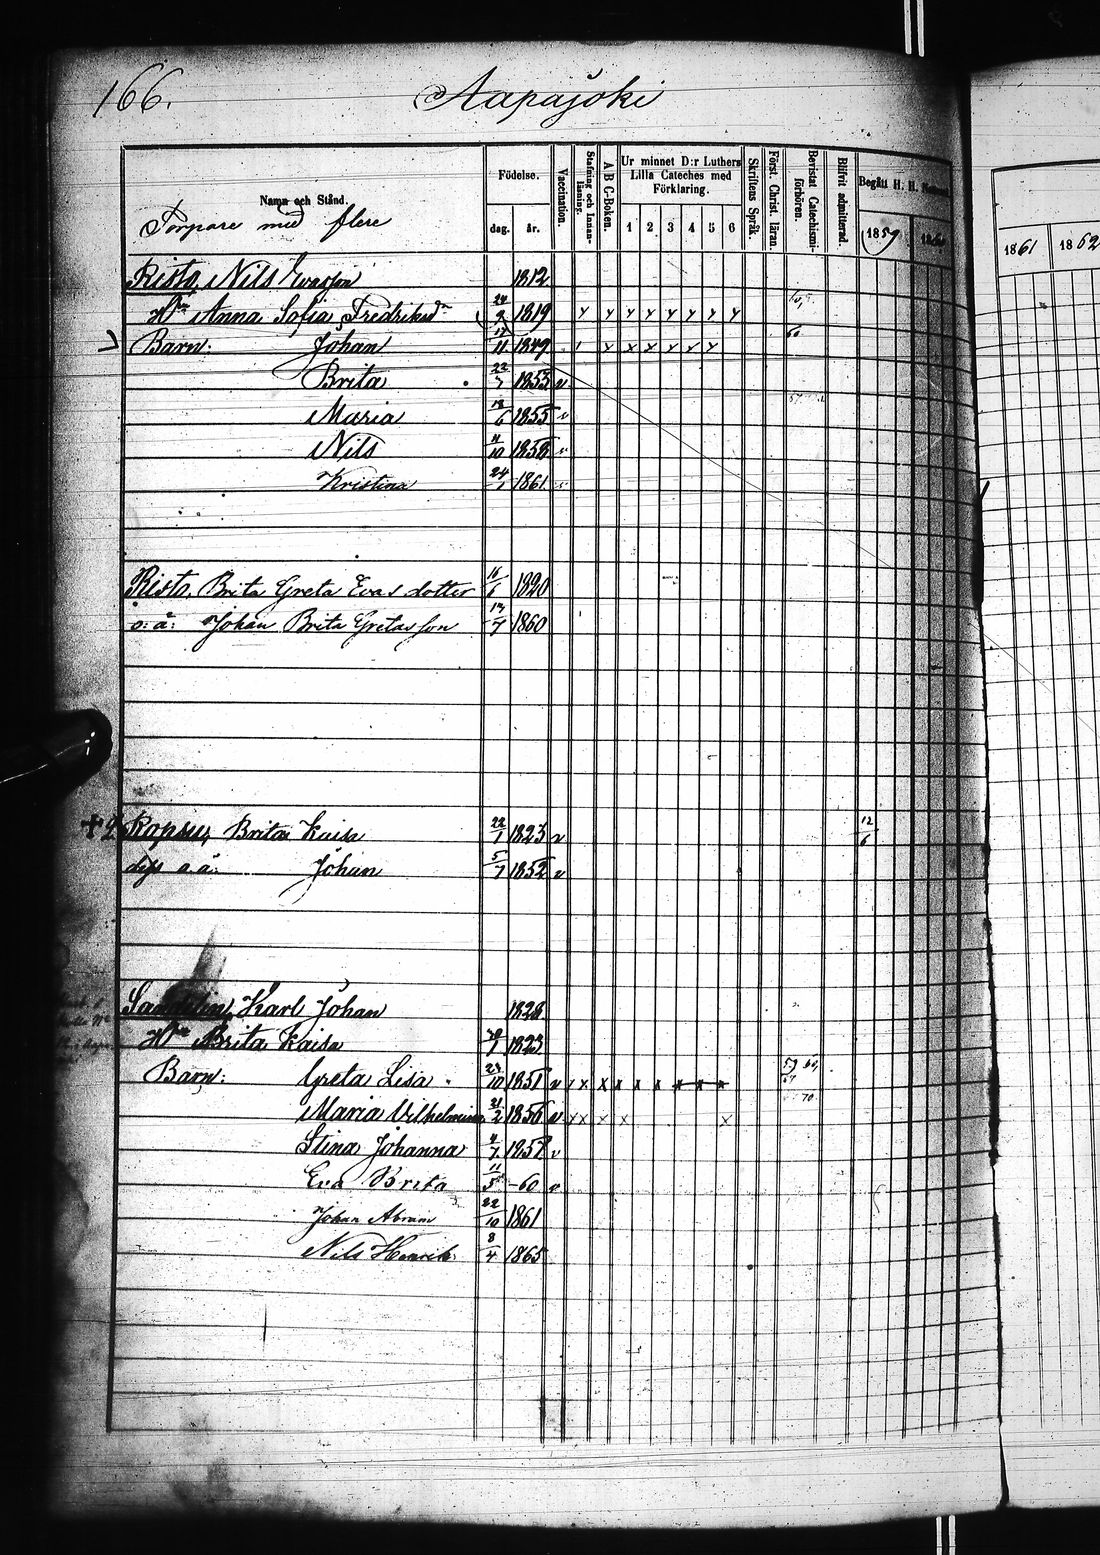 166. Aapajoki
Namn och Stånd. Födelse. dag. år. Vaccination. Stafning och Innanläsning. A B C-Boken. Ur minnet D:r Luthers Lilla Cateches med Förklaring. 1 2 3 4 5 6 Skriftens Språk. Först. Christ. läran. Bevistat Catechismiförhören. Blifvit admitterad. Begått H. H. 1859 1861 1862
Torpare med flere
Risto, Nils Evasson 1812
H:n Anna Sofia Fredriksd:r 24/9 1819
Barn: Johan 17/11 1849 60
Brita 22/7 1853 v
Maria 18/6 1855 v
Nils 11/10 1858 v
Kristina 24/1 1861
Risto, Brita Greta Evas dotter 16/6 1820
o: ä: Johan Brita Gretas son 13/7 1860
Brita Kaisa 22/1 1823 v 12/6
dess o. ä. Johan 5/7 1852 v
Karl Johan 1828
H:n Brita Kaisa 1823
Barn: Greta Lisa 23/10 1851 v x x x x x x x x x
Maria Vilhelmina 21/2 1856 v x x x x x 70
Stina Johanna 4/7 1858 v
Eva Brita 11/5 -60 v
Johan Abram 22/10 1861
Nils Henrik 8/4 1865